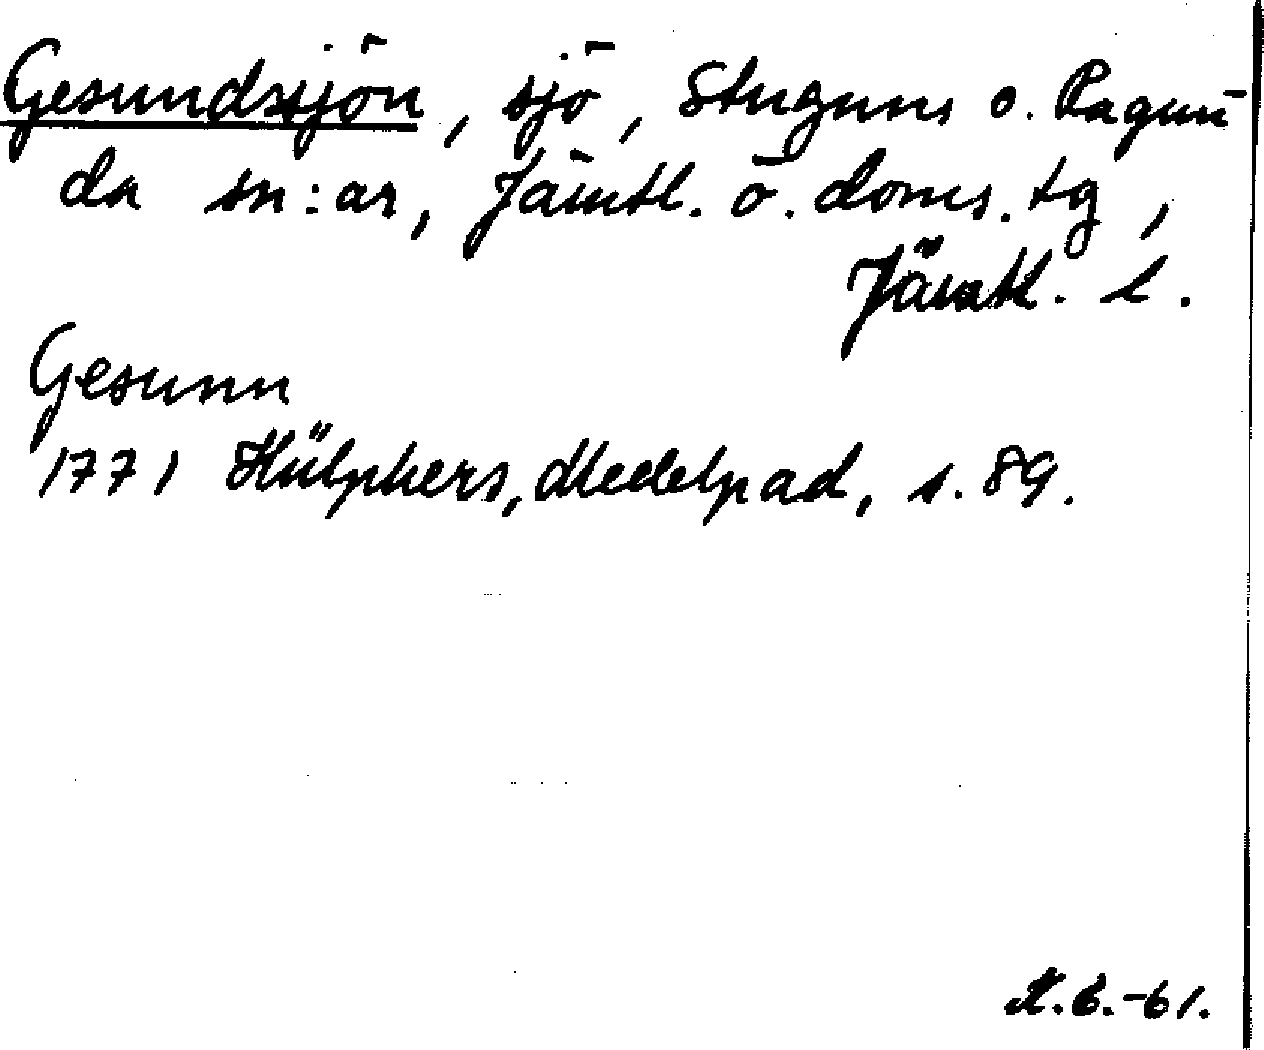 Gesundsjön, sjö, Stuguns o. Ragun-
da sn:ar, Jämtl. ö. doms. tg,
Jämtl. l.
Gesunn
1771 Hülphers, Medelpad, s. 89.
K.B.-61.